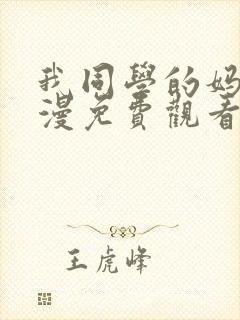 我同學的妈
漫免費觀看
王虎峰